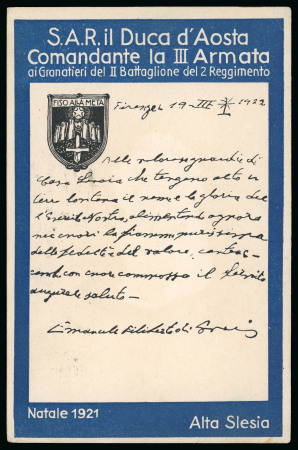 S.A.R. il Duca d'Aosta
Comandante la III Armata
ai Granatieri del II Battaglione del 2 Reggimento
FISO ALLA META
Firenze 19-III 1922
Alle valorose guardie di
Casa Savoia che tengono alto in
terra lontana il nome e la gloria del
l'Esercito Nostro, alimentando ognora
nei cuori la fiamma purissima
della fedeltà e del valore, contrac-
cambio con cuore commosso il
augurale saluto -
Emanuele Filiberto di Savoia
Natale 1921
Alta Slesia